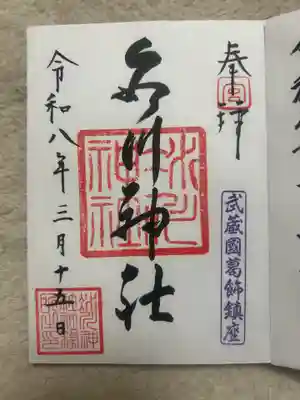 奉拝
武蔵國葛飾鎮座
氷川神社
氷川神社
令和八年三月十五日